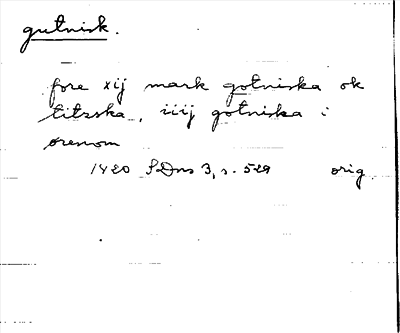 gutnisk.
fore xij mark gotniska ok
titzska, iiij gotniska i
ørenom
1420 SDns 3, s. 529 orig